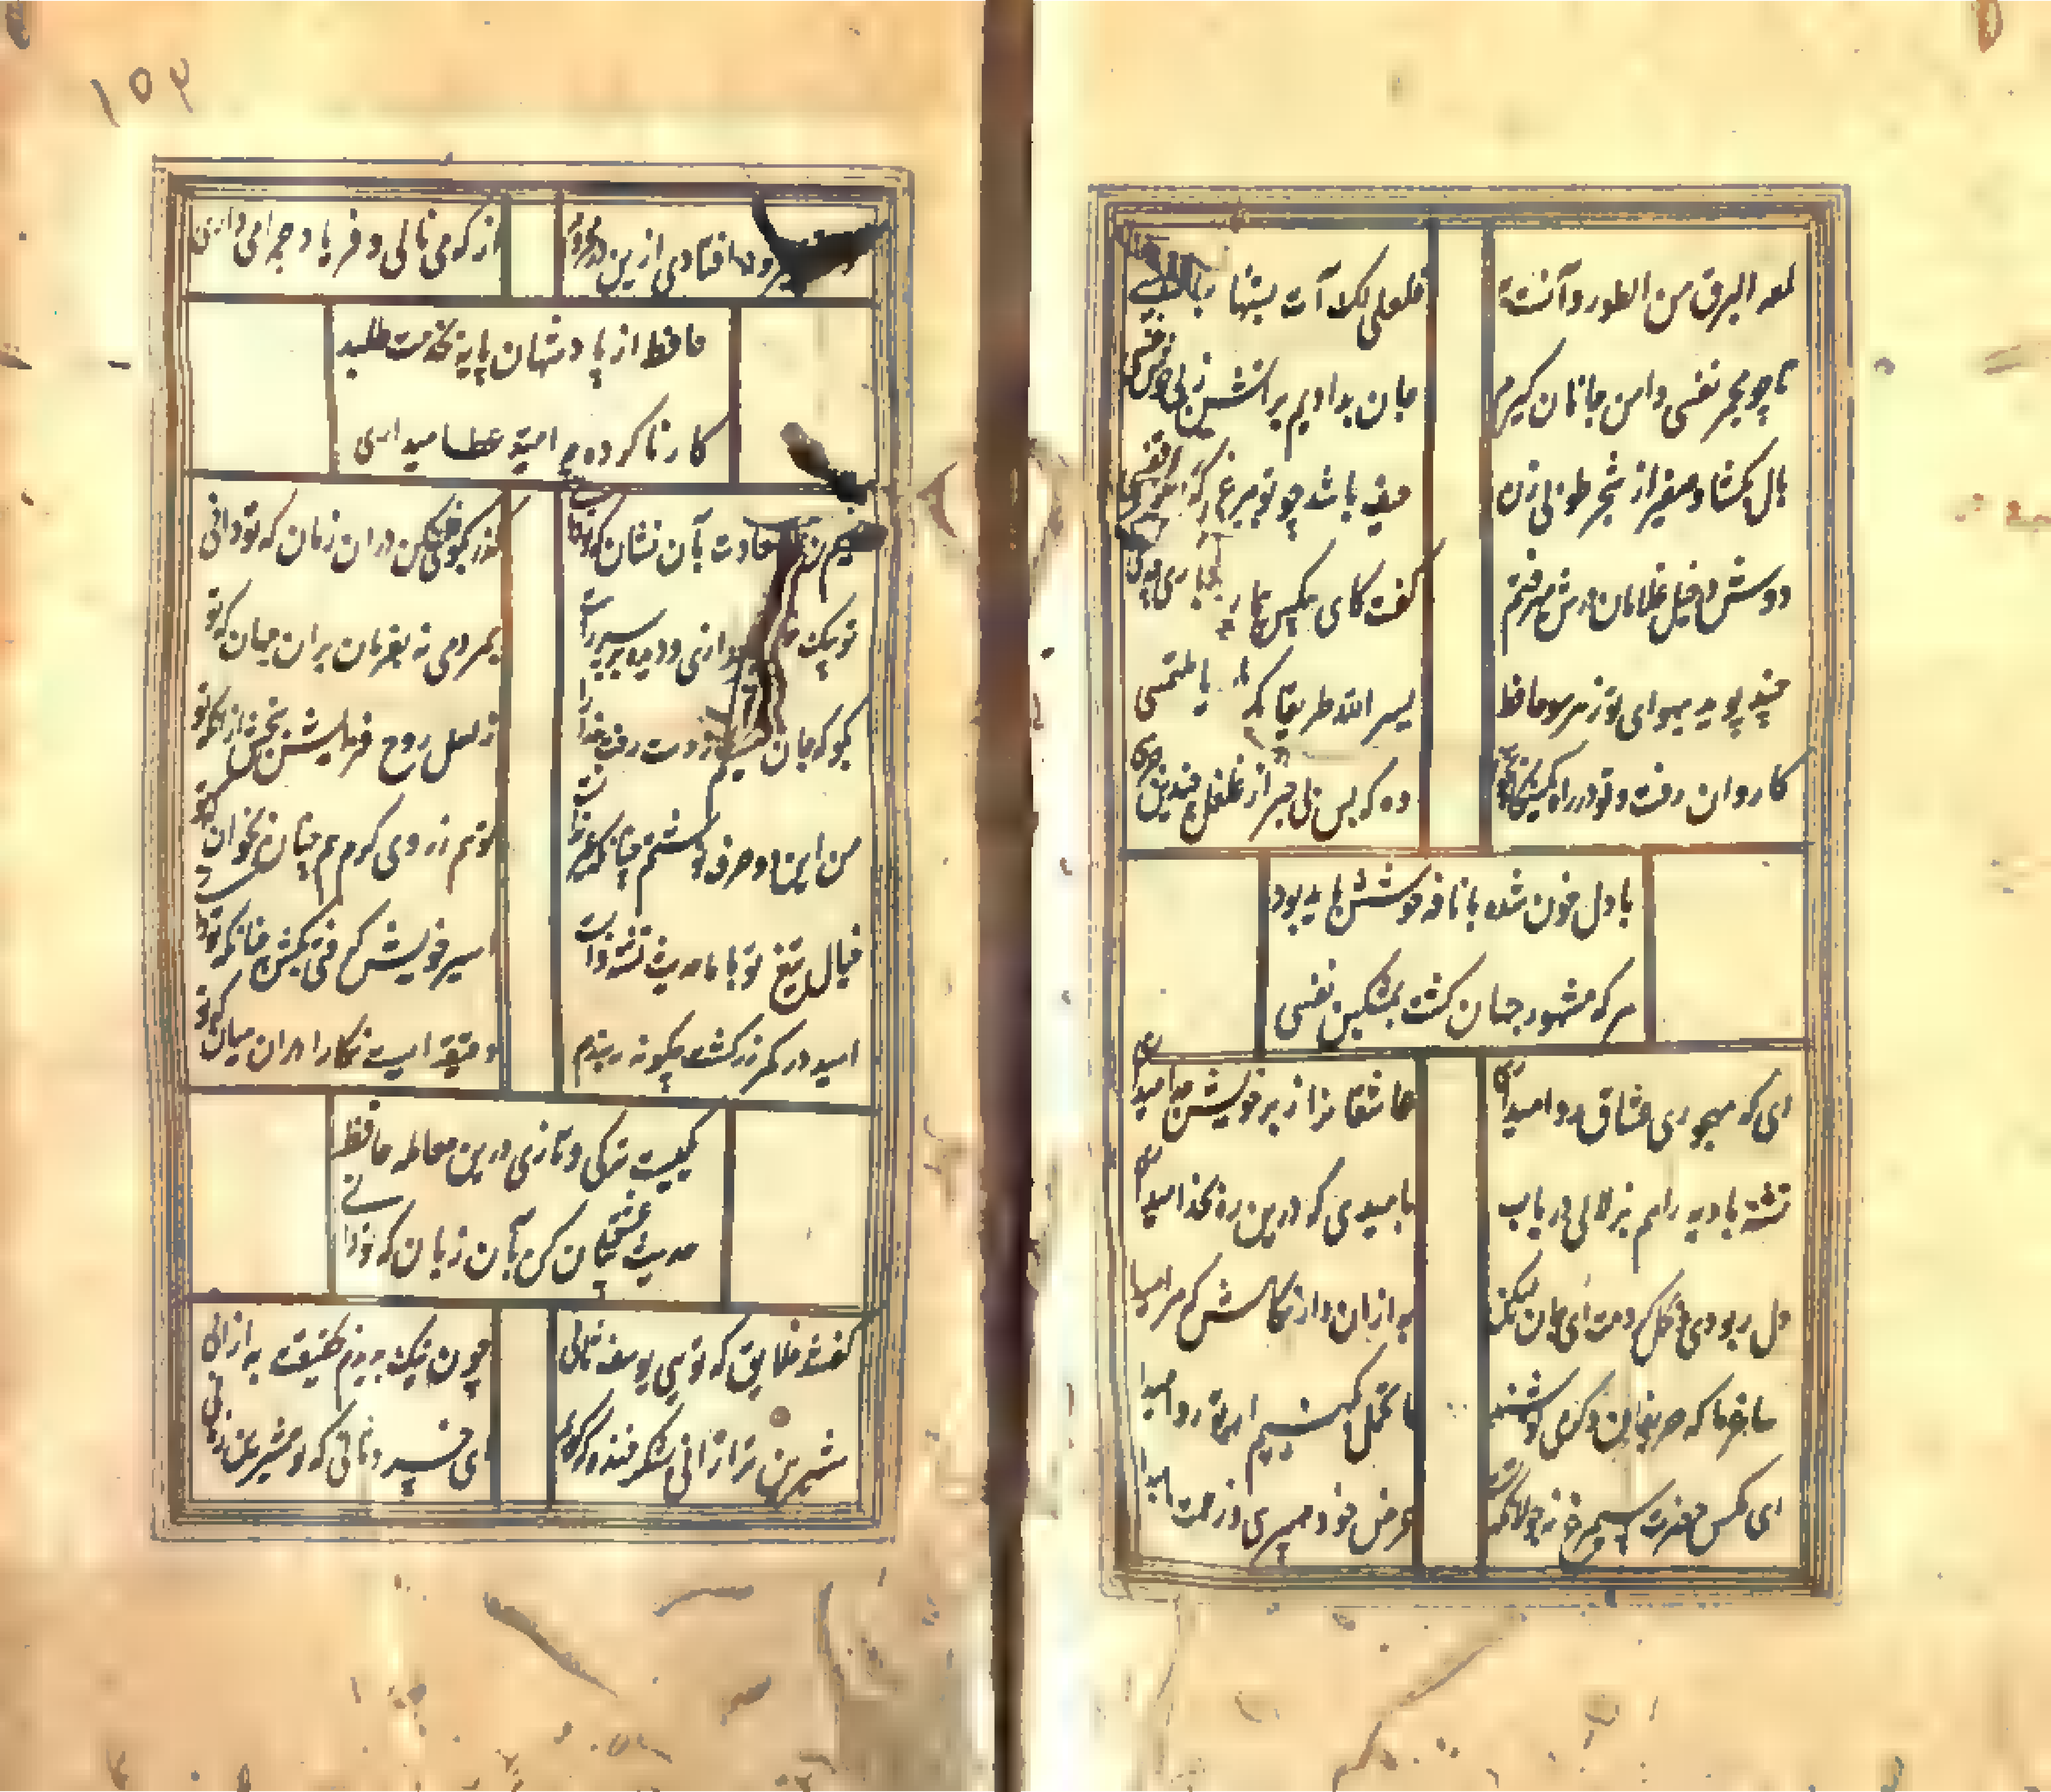 لمع البرق من الطور و آنست به
فلعلی لک آت بشهاب
تا چو مجمر نفسی دامن جانان گیرم
جان بدادیم بر آتش ز پی خوش نفسی
بال بگشا و صفیر از شجر طوبی زن
حیف باشد چو تو مرغی که اسیر قفسی
دوش در خیل غلامان درش میرفتم
گفت کای بیکس بیچاره
چند پوید بهوای تو ز هر سو حافظ
یسر الله طریقا بک یا ملتمسی
کاروان رفت و تو در راه کمینگاه بخواب
وه که بس بی خبر از غلغل چندین جرسی
با دل خون شده با نافه خوشش باید بود
هر که مشهور جهان گشت بمشکین نفسی
ای که مهجوری عشاق روا میداری
عاشقانرا ز بر خویش جدا میداری
تشنه بادیه را هم بزلالی دریاب
بامیدی که درین ره بخدا میداری
دل ربودی و بحل کردمت ای جان لیکن
به ازان دار نگاهش که مرا میدا
ساغر ما که حریفان دگر می نوشند
ما تحمل نکنیم ار تو روا میدا
ای مگس حضرت سیمرغ نه جولانگه تست
عرض خود میبری و زحمت ما میدا
افتادی ازین در محروم
از که می نالی و فریاد چرا می داری
حافظ از پادشهان پایه بخدمت طلبند
کار ناکرده چه امید عطا میداری
نسیم صبح سعادت بآن نشان که تو دانی
گذر بکوی فلان کن دران زمان که تو دانی
تو پیک
بمردمی نه بفرمان بران چنان که تو
بگو که جان ز دست رفت خدا را
ز لعل روح فزایش ببخش ازان که تو
من این دو حرف نوشتم چنانکه غیر ندانست
تو هم ز روی کرم هم چنان بخوان که تو
خیال تیغ تو با ما حدیث تشنه و آبست
اسیر خویش گرفتی بکش چنانکه تو دا
امید در کمر زرکشت چگونه ببندم
دقیقه ایست نگارا دران میان که تو
یکیست ترکی و تازی درین معامله حافظ
حدیث عشق بیان کن بآن زبان که تو دانی
گفتند خلایق که تویی یوسف ثانی
چون نیک بدیدم بحقیقت به ازانی
شیرین تر ازانی بشکر خنده که گویم
ای خسرو خوبان که تو شیرین زمانی
۱۵۳